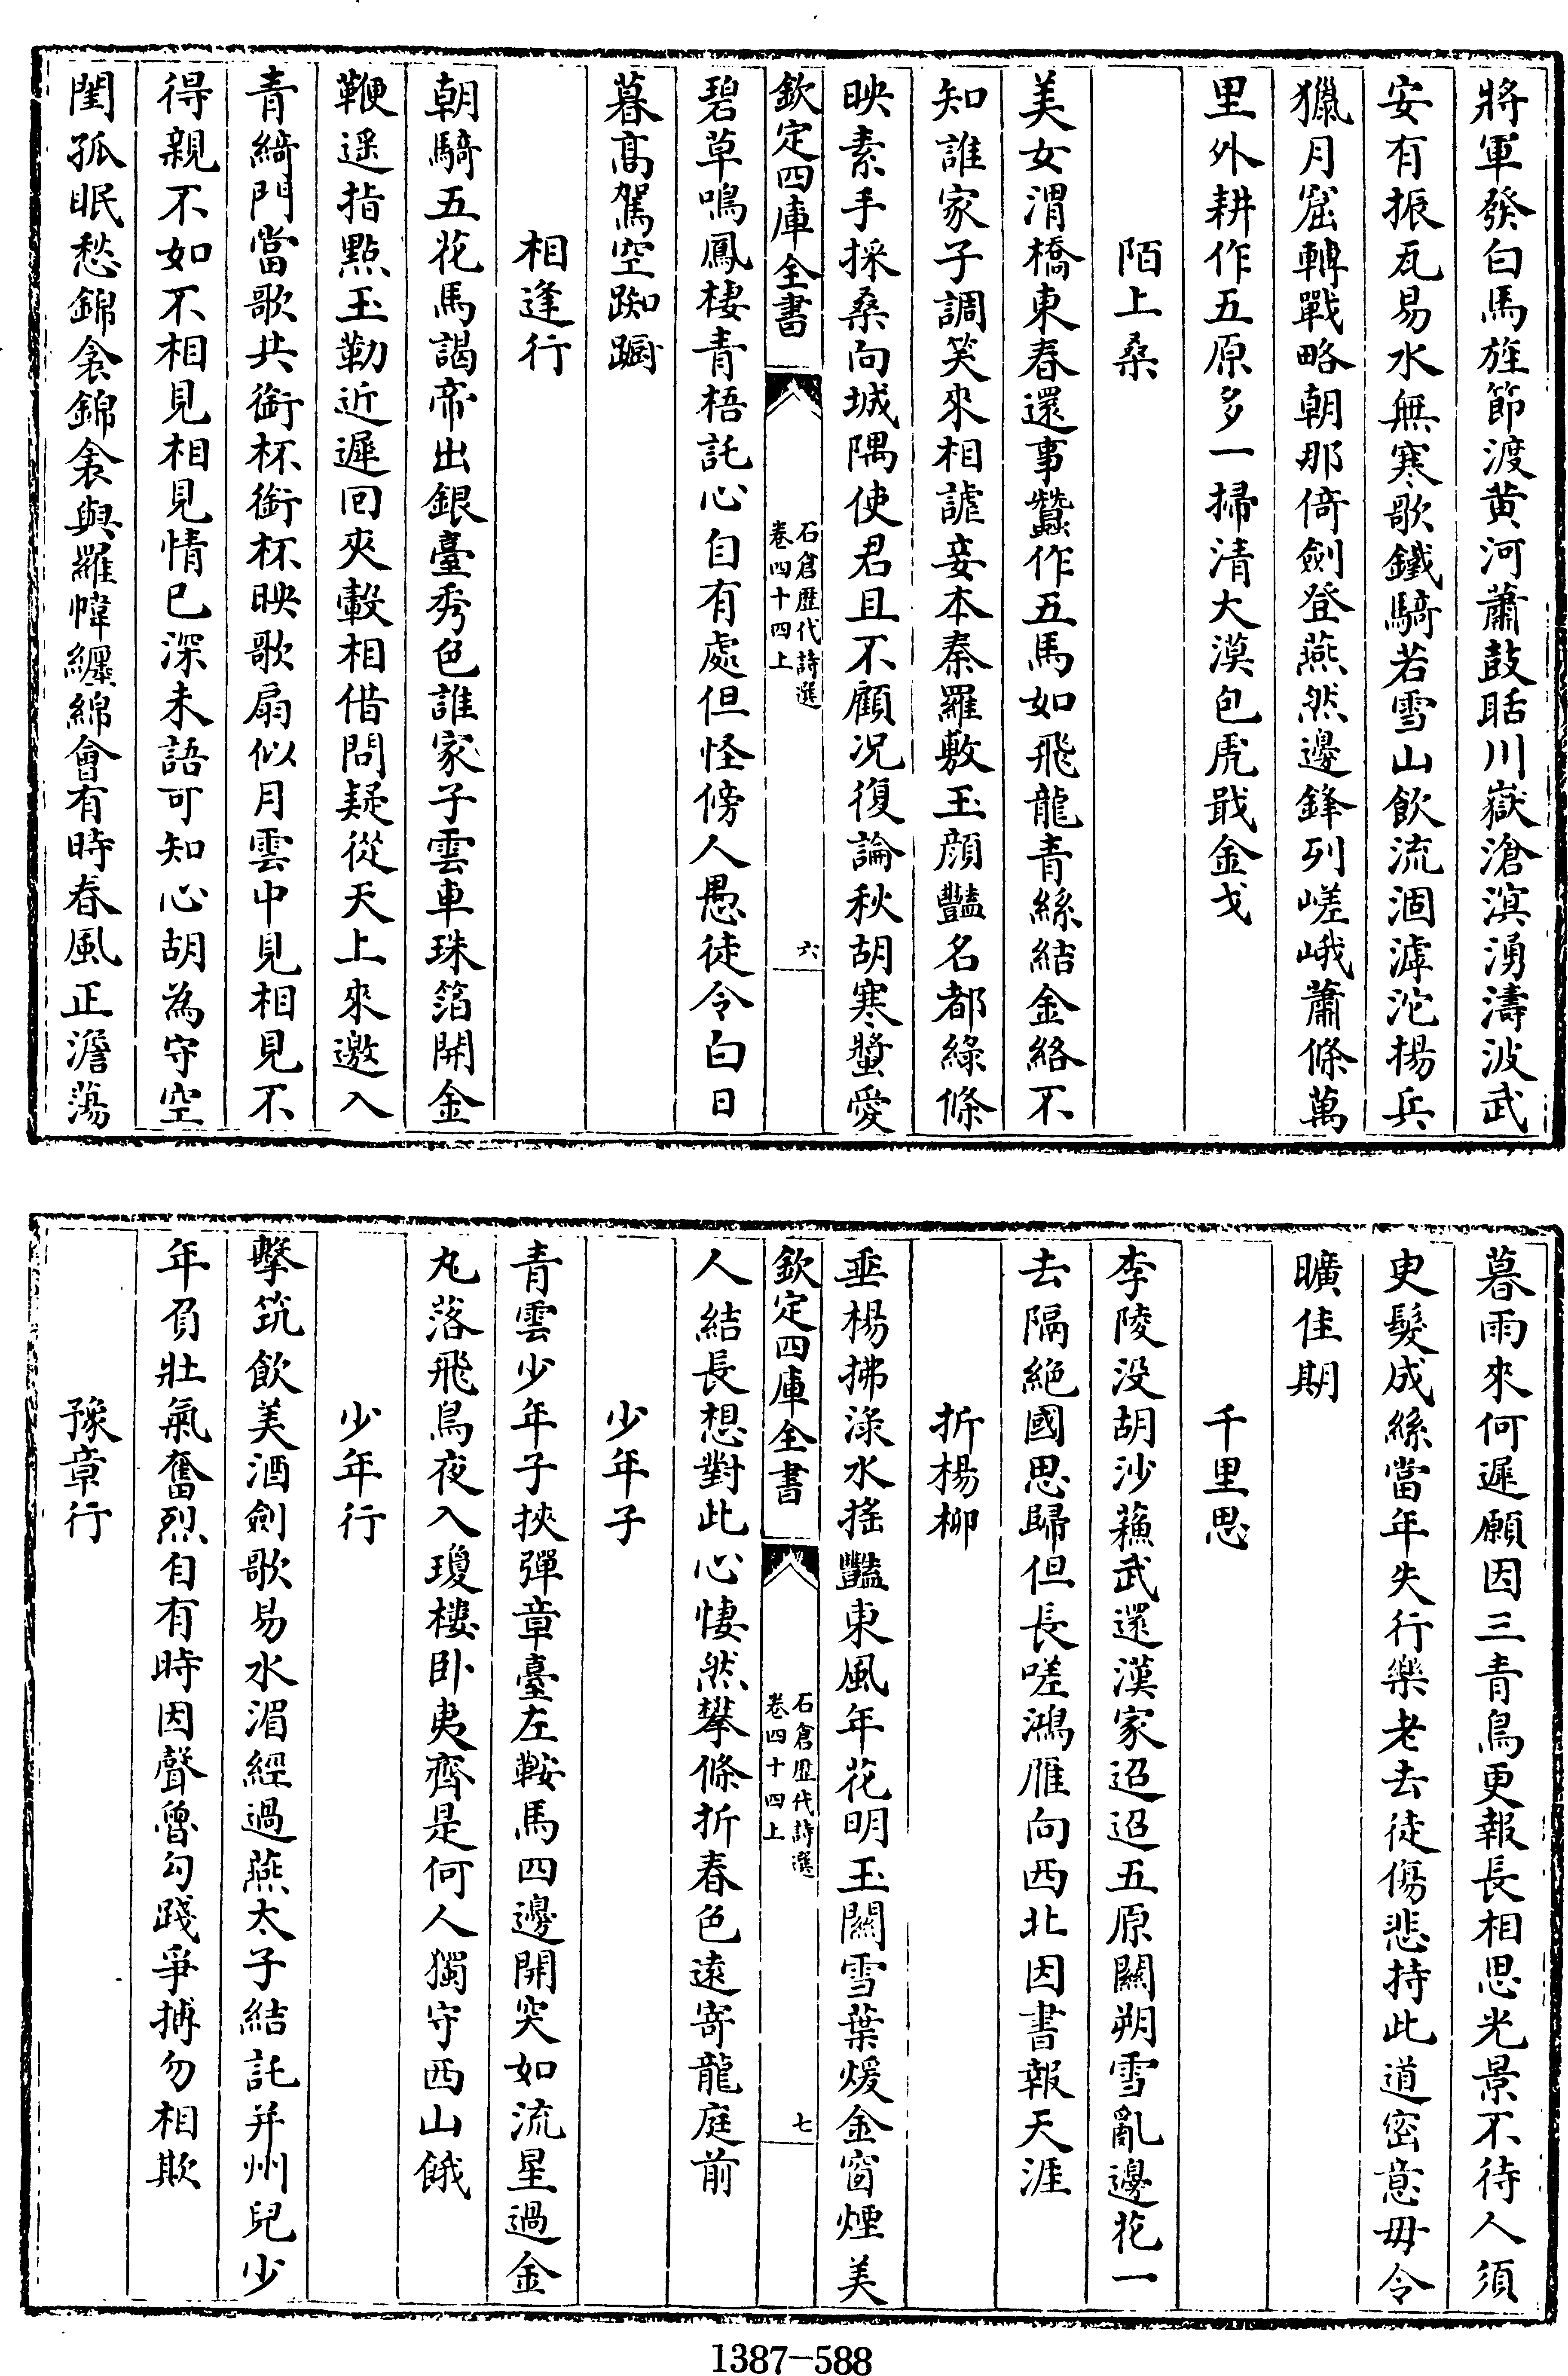 將軍發白馬旌節渡黄河蕭鼓聒川嶽滄溟湧濤波武
安有振瓦易水無寒歌鐵騎若雪山飲流涸滹沱揚兵
獵月窟轉戰略朝那倚劍登燕然邊鋒列嵯峨蕭條萬
里外耕作五原多一掃清大漠包虎戢金戈
陌上桑
美女渭橋東春還事蠶作五馬如飛龍青絲結金絡不
知誰家子調笑來相謔妾本秦羅敷玉顔豔名都綠條
映素手採桑向城隅使君且不顧况復論秋胡寒螿愛
欽定四庫全書
石倉歴代詩選
卷四十四上
六
碧草鳴鳳棲青梧託心自有處但怪傍人愚徒令白日
暮髙駕空踟蹰
相逢行
朝騎五花馬謁帝出銀臺秀色誰家子雲車珠箔開金
鞭遥指點玉勒近遲回夾轂相借問疑從天上來邀入
青綺門當歌共銜杯銜杯映歌扇似月雲中見相見不
得親不如不相見相見情已深未語可知心胡為守空
閨孤眠愁錦衾錦衾與羅幃纒綿會有時春風正澹蕩
暮雨來何遲願因三青鳥更報長相思光景不待人須
史髮成絲當年失行樂老去徒傷悲持此道密意毋令
曠佳期
千里思
李陵没胡沙蘓武還漢家迢迢五原關朔雪亂邊花一
去隔絶國思歸但長嗟鴻雁向西北因書報天涯
折楊柳
垂楊拂淥水搖豔東風年花明玉關雪葉煖金窗煙美
欽定四庫全書
石倉歴代詩選
卷四十四上
七
人結長想對此心悽然攀條折春色遠寄龍庭前
少年子
青雲少年子挾彈章臺左鞍馬四邊開突如流星過金
丸落飛鳥夜入瓊樓卧夷齊是何人獨守西山餓
少年行
擊筑飲美酒劍歌易水湄經過燕太子結託并州兒少
年負壯氣奮烈自有時因聲魯勾踐爭搏勿相欺
豫章行
1387-588